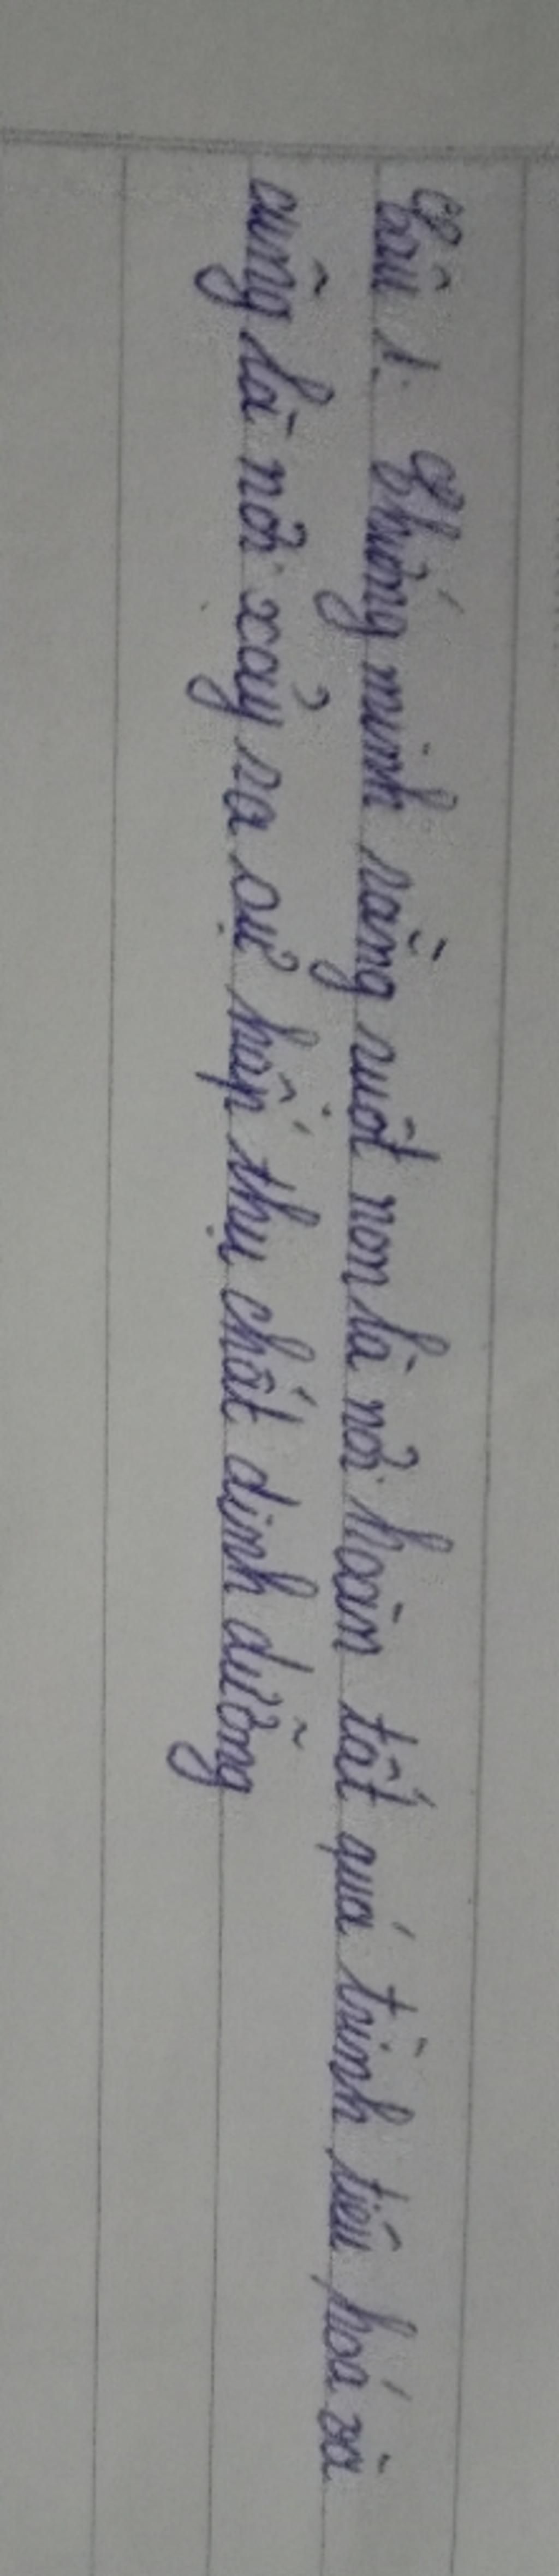 Câu 1. Chứng minh rằng ruột non là nơi hoàn tất quá trình tiêu hoá và
cũng là nơi xảy ra sự hấp thụ chất dinh dưỡng